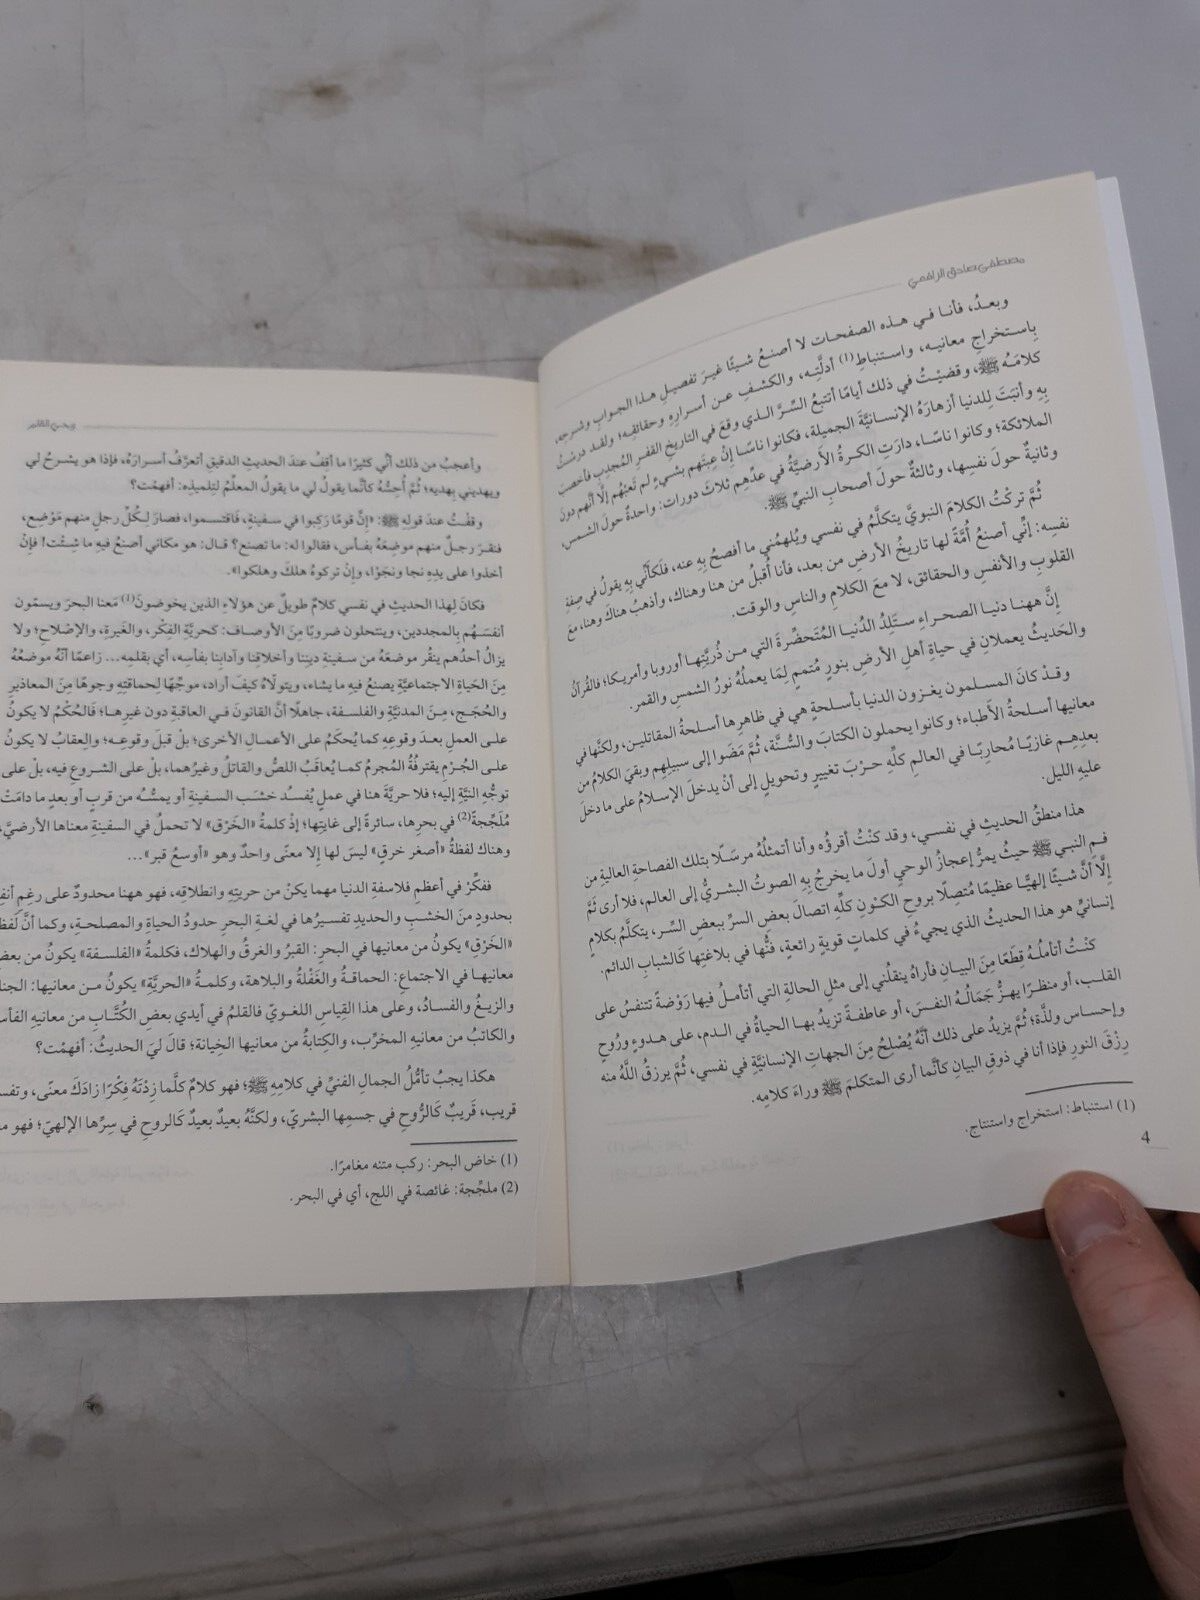 مصطفى صادق الرافعي
وبعـدُ، فأنـا فـي هـذه الصفحـات لا أصنـعُ شـيئًا غيـرَ تفصيـلِ هـذا الجـوابِ وشـرحِه،
بِاسـتخراجِ معانيـه، واسـتنباطِ(1) أدلَّتِـه، والكشـفِ عـن أسـرارِهِ وحقائقِـه؛ ولقـد درسْـتُ
كلامَـهُ ﷺ، وقضيْـتُ في ذلك أيامًا أتتبعُ السِّـرَّ الـذي وقعَ في التاريخِ القفـرِ المُجدِبِ فأخصبَ
بِهِ وأنبَتَ لِلدنيا أزهارَهُ الإنسـانيَّةَ الجميلة، فكانوا ناسًـا إنْ عِبتَهم بشـيءٍ لم تَعِبْهُم إلَّا أنَّهم دونَ
الملائكة؛ وكانوا ناسًـا، دارَتِ الكـرةُ الأرضيَّةُ في عدِّهِم ثلاثَ دورات: واحدةٌ حولَ الشـمس،
وثانيةٌ حولَ نفسِها، وثالثةٌ حولَ أصحابِ النبيِّ ﷺ.
ثُمَّ تركْتُ الكلامَ النبويَّ يتكلَّمُ في نفسي ويُلهمُني ما أفصحُ بِهِ عنه، فَلَكأنِّي بِهِ يقولُ في صِفةِ
نفسِه: إنِّي أصنعُ أُمَّةً لها تاريخُ الأرضِ من بعد، فأنا أُقبلُ من هنا وهناك، وأذهبُ هناكَ وهنا، معَ
القلوبِ والأنفسِ والحقائق، لا معَ الكلامِ والناسِ والوقت.
إنَّ ههنـا دنيـا الصحـراءِ سـتَلِدُ الدُنيـا المُتحضِّـرةَ التي مـن ذُرِيَّتِهـا أوروبا وأمريـكا؛ فالقُرآنُ
والحَديثُ يعملانِ في حياةِ أهلِ الأرضِ بنورٍ مُتممٍ لِمَا يعملُهُ نورُ الشمسِ والقمر.
وقـدْ كانَ المسـلمون يغـزون الدنيا بأسـلحةٍ هي في ظاهرِها أسلحةُ المقاتليـن، ولكنَّها في
معانيها أسـلحةُ الأطباء؛ وكانوا يحملون الكتابَ والسُّـنَّة، ثُمَّ مَضَوا إلى سبيلِهِم وبقيَ الكلامُ من
بعدِهِـم غازيًـا مُحاربًـا في العالـمِ كلِّهِ حـرْبَ تغييـرٍ وتحويـلٍ إلى أنْ يدخلَ الإسـلامُ على ما دخلَ
عليهِ الليل.
هذا منطقُ الحديثِ في نفسـي، وقد كنْتُ أقرؤُه وأنا أتمثلُهُ مرسَـلًا بتلك الفصاحةِ العاليةِ من
فـمِ النبي ﷺ حيثُ يمرُّ إعجازُ الوحي أولَ ما يخرجُ بِهِ الصوتُ البشـريُّ إلى العالم، فلا أرى ثَمَّ
إلَّا أنَّ شـيئًا إلهيًّـا عظيمًا مُتصِلًا بروحِ الكـوْنِ كلِّهِ اتصالَ بعضِ السرِّ ببعضِ السِّـر، يتكلَّمُ بكلامٍ
إنسانيٍّ هو هذا الحديثُ الذي يجيءُ في كلماتٍ قويةٍ رائعةٍ، فنُّها في بلاغتِها كَالشبابِ الدائم.
كنْـتُ أتأملُـهُ قِطَعًا مِنَ البيـانِ فأراهُ ينقلُني إلى مثلِ الحالةِ التي أتأمـلُ فيها رَوْضةً تتنفسُ على
القلـب، أو منظـرًا يهـزُّ جَمَالُـهُ النفـس، أو عاطفـةً تزيدُ بهـا الحياةُ في الـدم، على هـدوءٍ ورُوحٍ
وإحساسٍ ولذَّة؛ ثُمَّ يزيدُ على ذلك أنَّهُ يُصْلِحُ مِنَ الجهاتِ الإنسانيَّةِ في نفسي، ثُمَّ يرزقُ اللَّهُ منه
رِزْقَ النورِ فإذا أنا في ذوقِ البيانِ كأنَّما أرى المتكلمَ ﷺ وراءَ كلامِه.
(1) استنباط: استخراج واستنتاج.
4
وحي القلم
وأعجبُ من ذلك أنِّي كثيرًا ما أقِفُ عندَ الحديثِ الدقيقِ أتعرَّفُ أسـرارَهُ، فإذا هو يشـرحُ لي
ويهديني بِهديه؛ ثُمَّ أُحِسُّهُ كأنَّما يقولُ لي ما يقولُ المعلِّمُ لتلميذِه: أفهمْت؟
وقفْتُ عندَ قولِهِ ﷺ: «إنَّ قومًا رَكِبوا في سـفينةٍ، فَاقتسـموا، فصارَ لِـكُلِّ رجلٍ منهم مَوْضِع،
فنقـرَ رجـلٌ منهم موضِعَهُ بفأس، فقالوا له: ما تصنع؟ قـال: هو مكاني أصنعُ فيهِ ما شِئْت! فإنْ
أخذوا على يدِهِ نجا ونجَوْا، وإنْ تركوهُ هلكَ وهلكوا».
فكانَ لِهذا الحديثِ في نفسي كلامٌ طويلٌ عن هؤلاءِ الذين يخوضونَ(1) مَعنا البحرَ ويسمّون
أنفسَـهُم بِالمجددين، وينتحلون ضروبًا مِنَ الأوصـاف: كحريَّةِ الفِكْر، والغَيرةِ، والإصْلاح؛ ولا
يزالُ أحدُهم ينقُر موضعَهُ من سـفينةِ دِيننا وأخلاقِنا وآدابنا بفأسِه، أي بقلمِه... زاعمًا أنَّهُ موضعُهُ
مِنَ الحَياةِ الاجتماعيَّةِ يصنعُ فيهِ ما يشاء، ويتولَّاهُ كيفَ أراد، موجِّهًا لِحماقتِهِ وجوهًا مِنَ المعاذيرِ
والحُجَـج، مِـنَ المدنيَّةِ والفلسـفة، جاهلًا أنَّ القانونَ فـي العاقبةِ دون غيرِهـا؛ فَالحُكْمُ لا يكونُ
علـى العملِ بعـدَ وقوعِهِ كما يُحكَمُ على الأعمـالِ الأخرى؛ بلْ قبلَ وقوعـه؛ والعِقابُ لا يكونُ
علـى الجُـرْمِ يقترفُهُ المُجرمُ كمـا يُعاقَبُ اللصُّ والقاتلُ وغيرُهما، بلْ على الشـروعِ فيه، بلْ على
توجُّهِ النيَّةِ إليه؛ فلا حريَّةَ هنا في عملٍ يُفسـدُ خشـبَ السـفينةِ أو يمسُّـهُ من قربٍ أو بعدٍ ما دامَتْ
مُلَجِّجةً(2) في بحرِها، سائرةً إلى غايتِها؛ إذْ كلمةُ «الخَرْق» لا تحملُ في السفينةِ معناها الأرضيَّ،
وهناك لفظةُ «أصغر خرقٍ» ليسَ لها إلا معنًى واحدٌ وهو «أوسعُ قبر»...
ففكِّرْ في أعظمِ فلاسفةِ الدنيا مهما يكنْ من حريتِهِ وانطلاقِه، فهو ههنا محدودٌ على رغمِ
بحدودٍ منَ الخشبِ والحديدِ تفسيرُها في لغـةِ البحرِ حدودُ الحياةِ والمصلحـة، وكما أنَّ
«الخَرْقِ» يكونُ من معانيها في البحر: القبرُ والغرقُ والهلاك، فكلمةُ «الفلسـفة» يكونُ من
معانيهـا في الاجتماع: الحماقـةُ والغَفْلةُ والبلاهة، وكلمـةُ «الحريَّةِ» يكونُ مـن معانيها:
والزيـغُ والفسـادُ، وعلى هذا القِياسِ اللغـويّ فالقلمُ في أيدي بعضِ الكُتَّـابِ من معانيهِ
والكاتبُ من معانيهِ المخرِّب، والكِتابةُ من معانيها الخِيانة؛ قالَ ليَ الحديثُ: أفهمْت؟
هكذا يجبُ تأمُّلُ الجمالِ الفنيِّ في كلامِهِ ﷺ؛ فهو كلامٌ كلَّما زِدْتَهُ فِكْرًا زادَكَ معنًى،
قريب، قَريبٌ كَالرُّوحِ في جسمِها البشريّ، ولكنَّهُ بعيدٌ بعيدٌ كَالروحِ في سِرِّها الإلهيّ؛ فهو
(1) خاض البحر: ركب متنه مغامرًا.
(2) ملجِّجة: غائصة في اللج، أي في البحر.